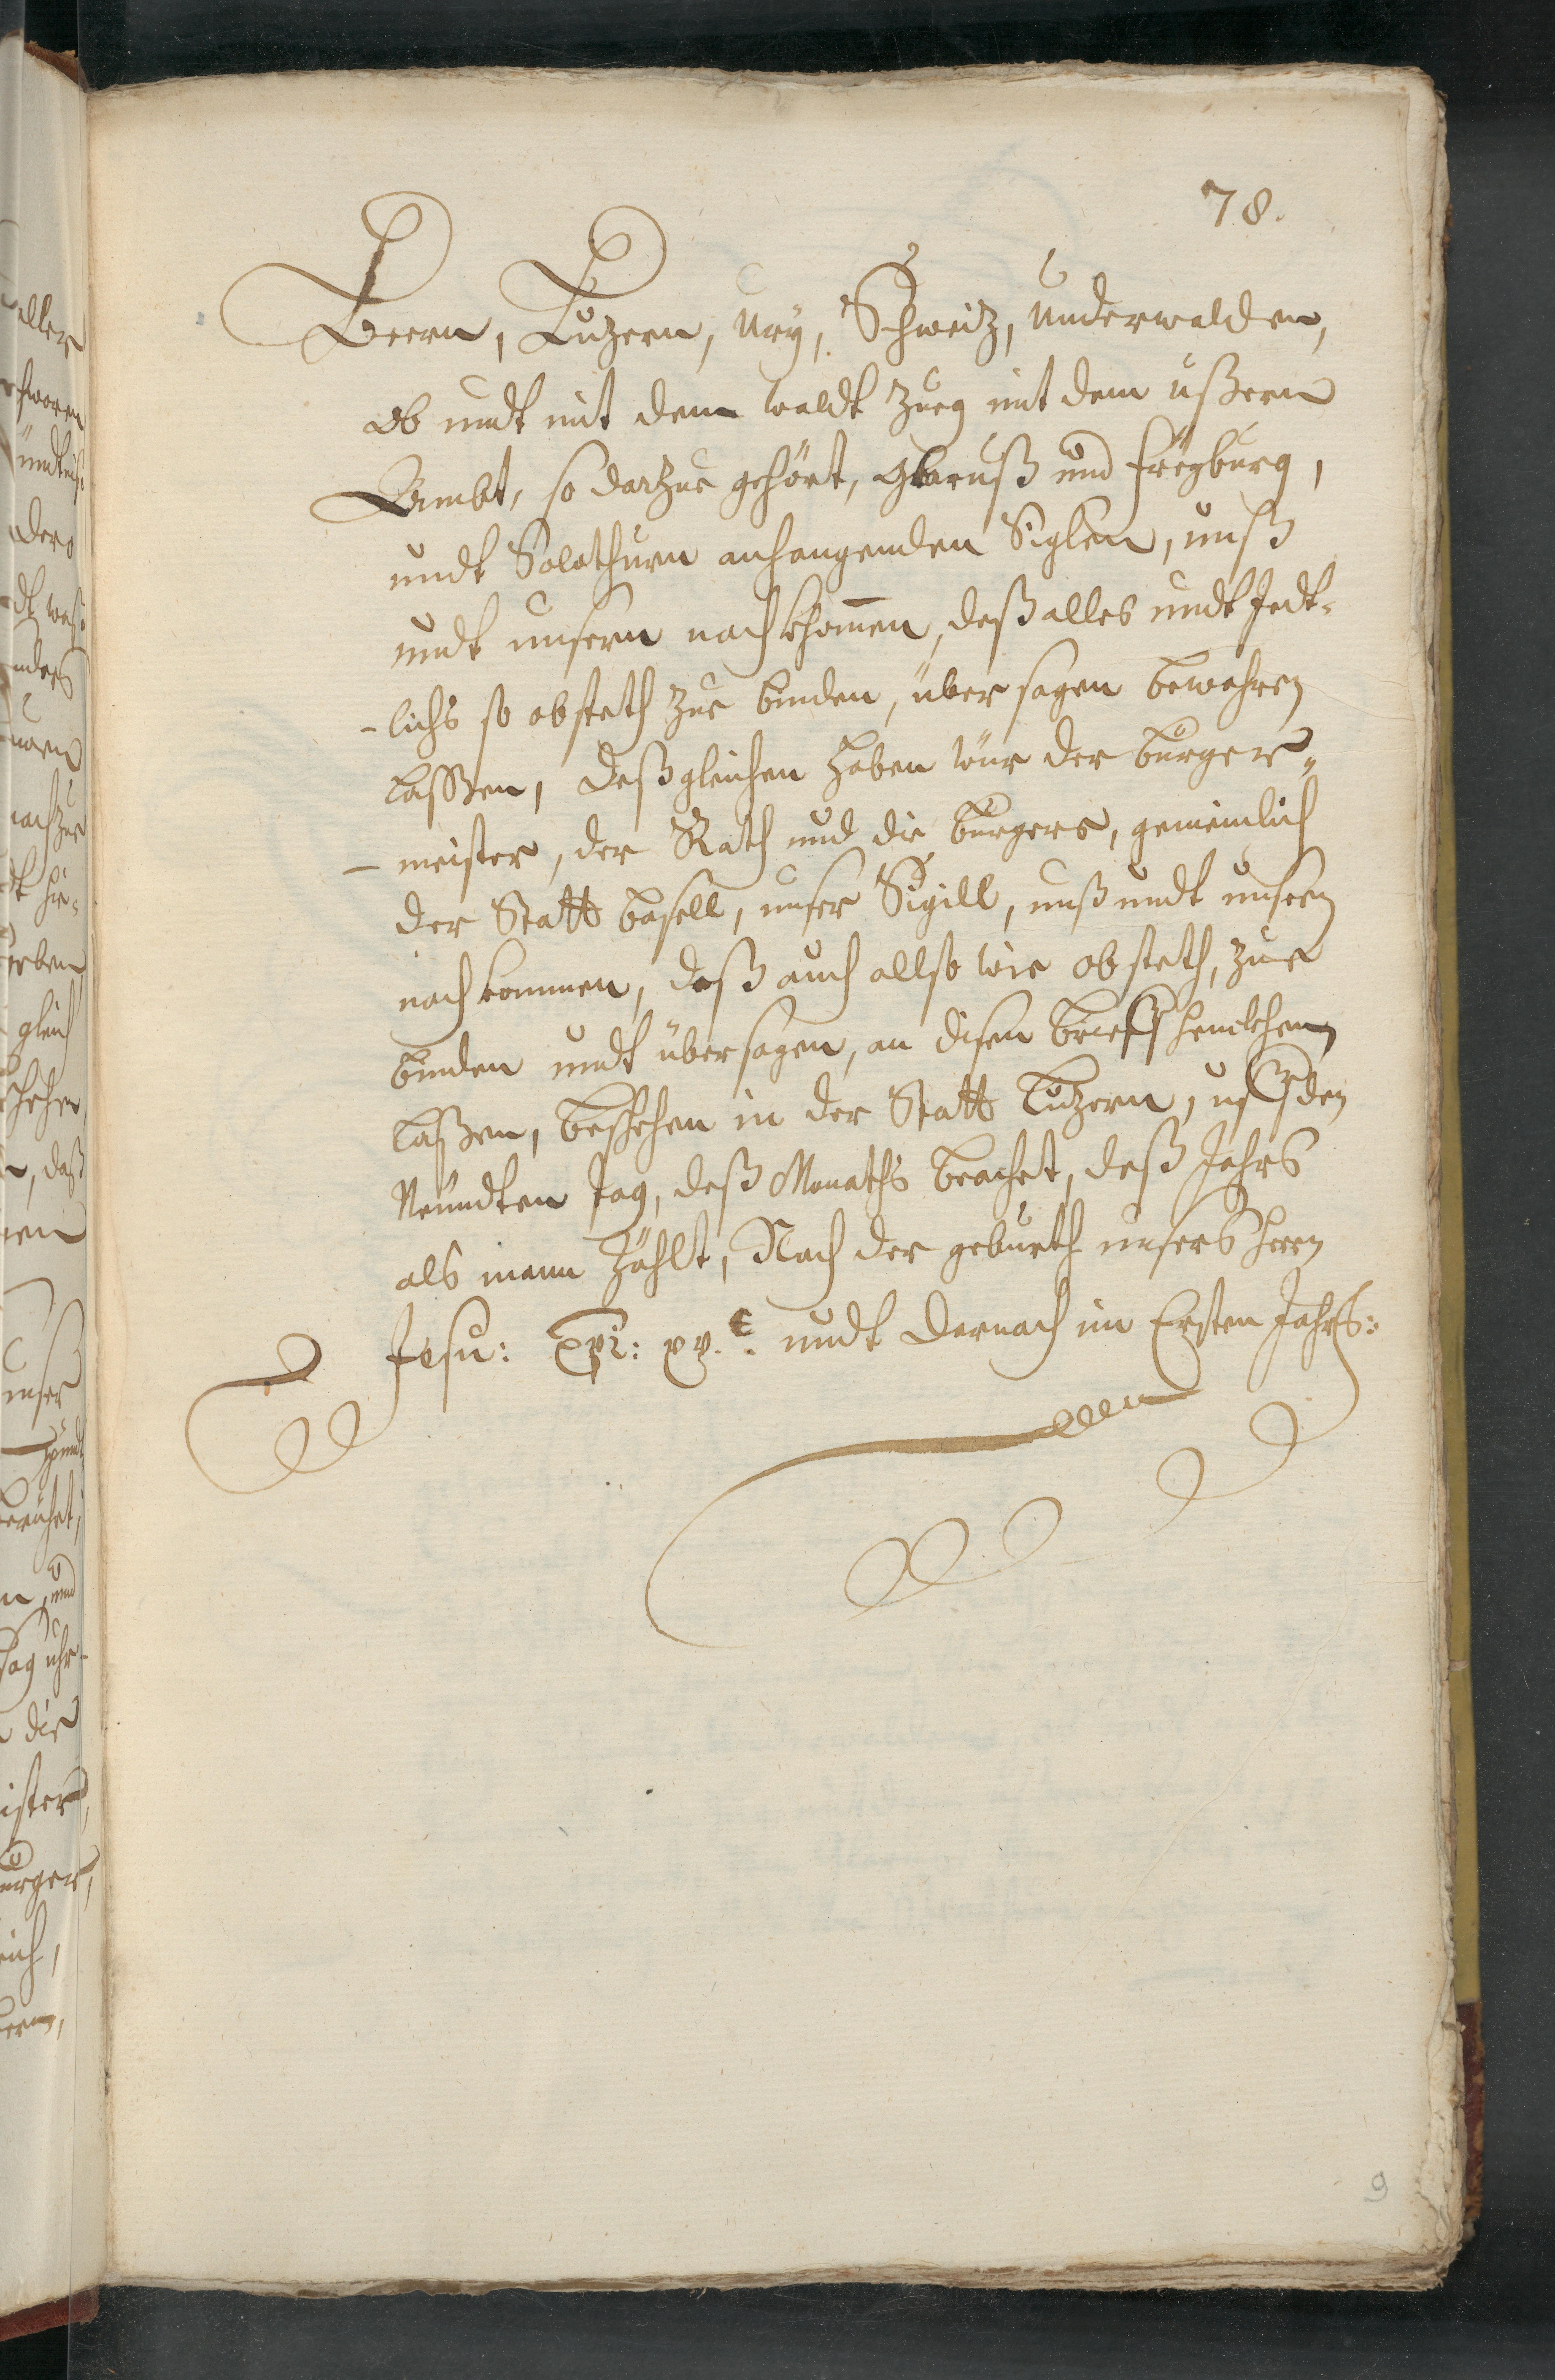 78.
Beern, Luzern, Ury, Schweitz, Underwalden,
ob undt nit dem waldt Zueg mit dem ußeren
Ambt, so darzue gehört, Glaruß und Freyburg,
undt Solothurn anhangenden Siglen, unß
undt unsern nachkhomen, deß alles undt Jedt-
-lichs so obsteth zue binden, übersagen bewahren
lassen, deßgleichen haben wür der burger-
-meister, der Rath und die burgere, gemeinlich
der Statt basell, unser Sigill, unß undt unsern
nachkommen, deß auch allso wie obsteth, zue
binden undt übersagen, an disen brieff henckhen
laßen, beschehen in der Statt Luzern, uff den
Neundten tag, deß Monaths brachet, deß Jahrs
als mann zählt, Nach der geburth unsers herrn
Jesu: Xpi: xv.c. undt darnach im Ersten Jahrs:
9